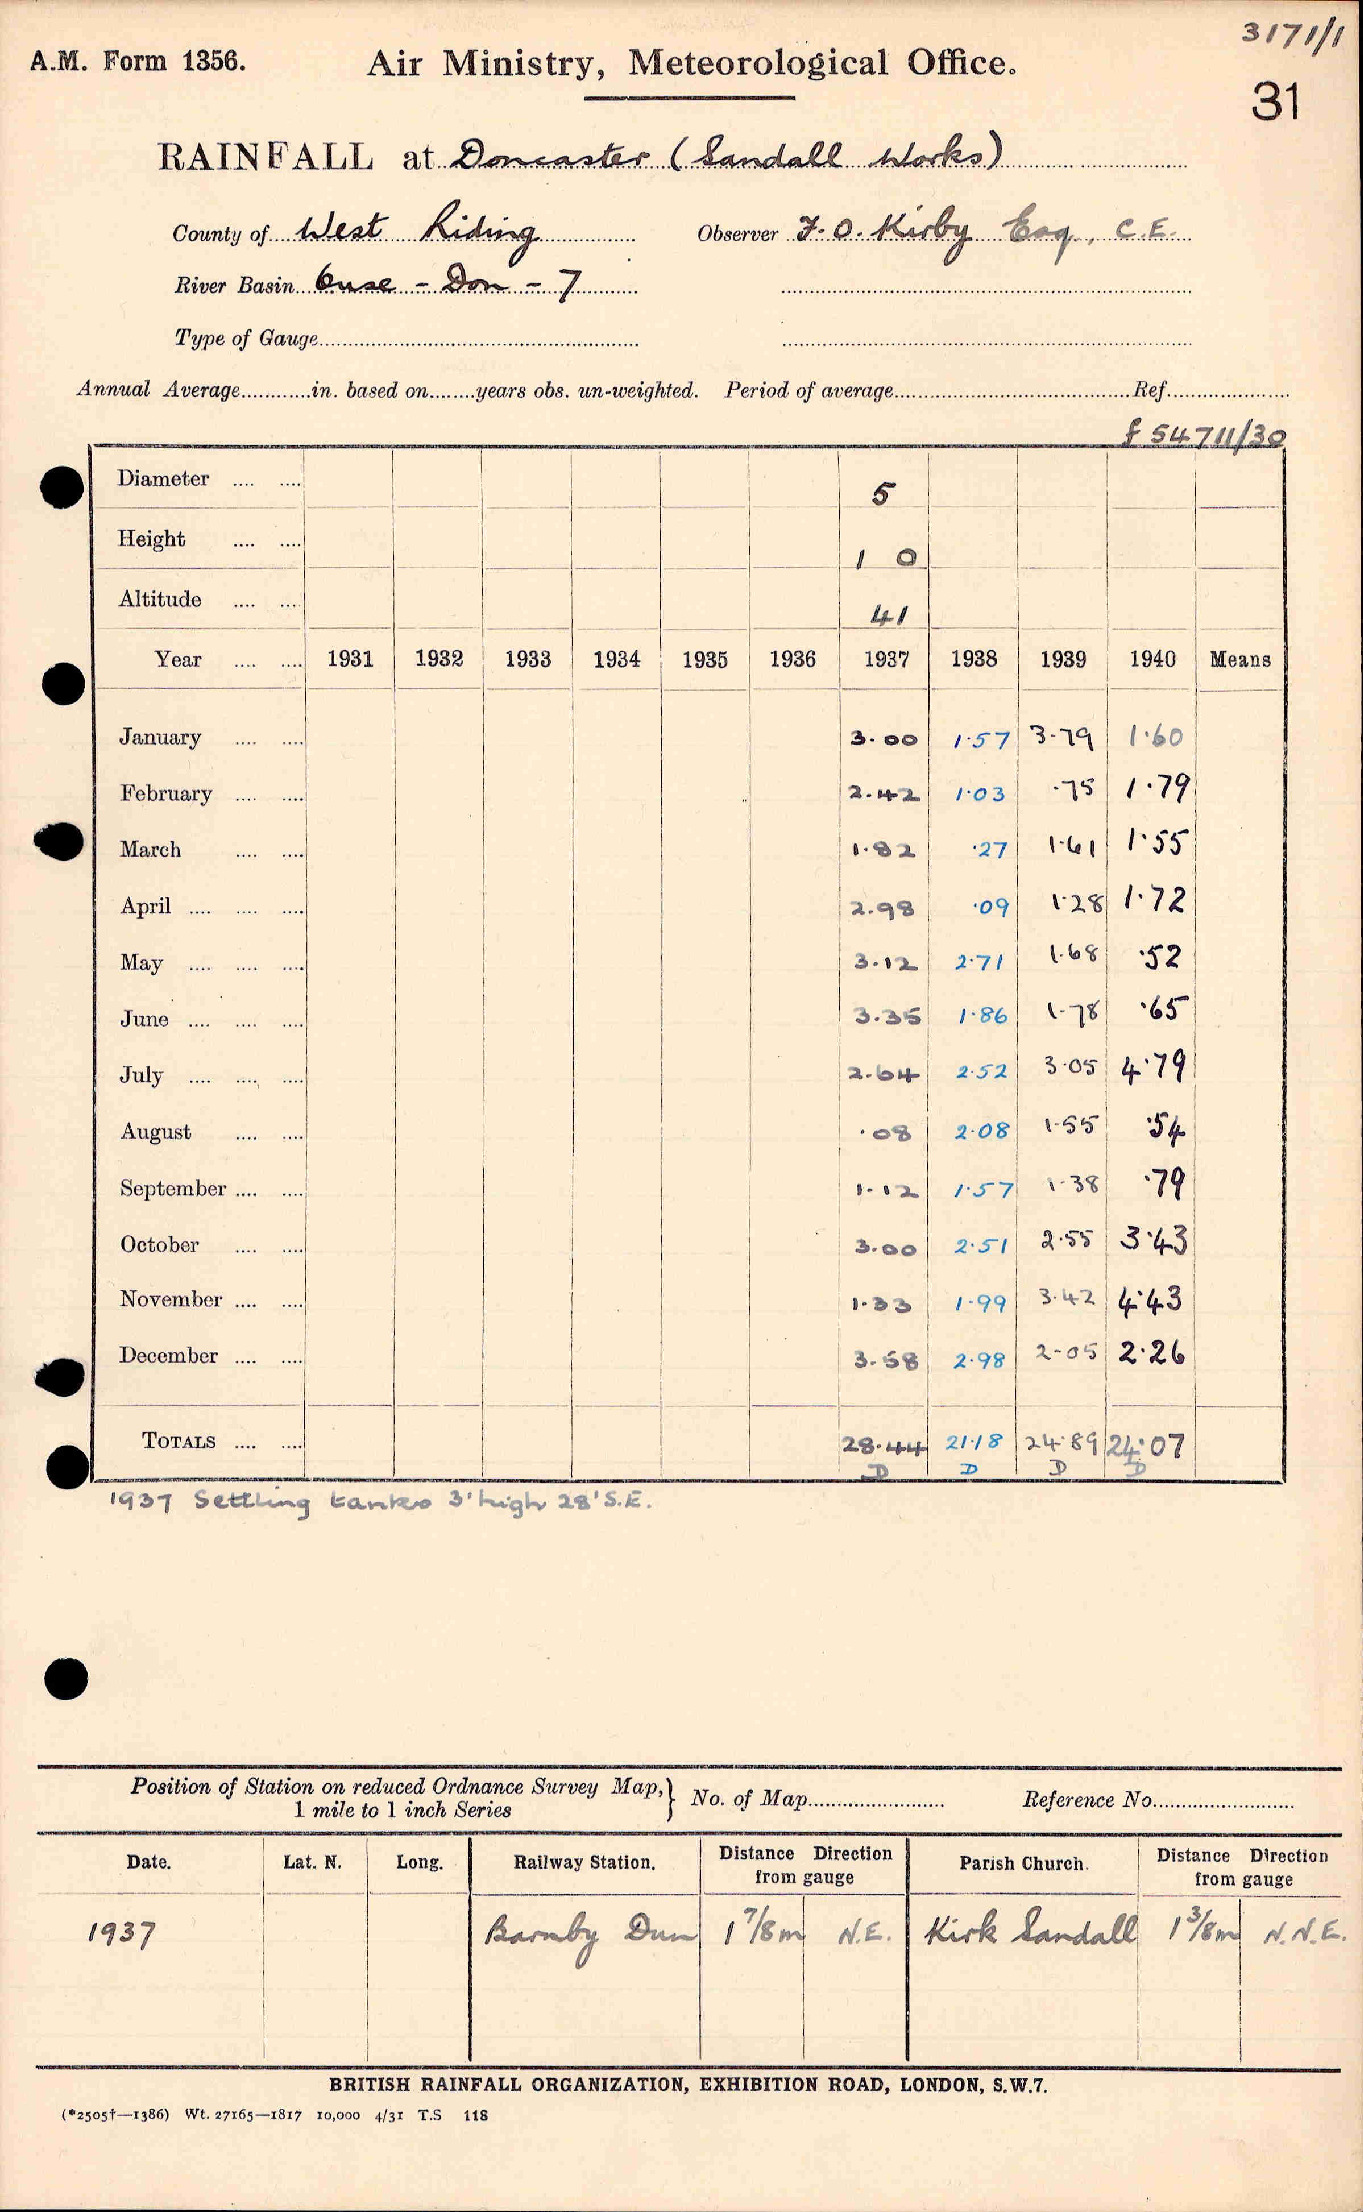 3171/1
A.M. Form 1356. Air Ministry, Meteorological Office.
31
RAINFALL at Doncaster (Sandall Works)
County of West Riding Observer F. O. Kirby Esq., C.E.
River Basin Ouse - Don - 7
Type of Gauge
Annual Average in. based on years obs. un-weighted. Period of average Ref.
f 54711/30
Diameter 5
Height 1 0
Altitude 41
Year 1931 1932 1933 1934 1935 1936 1937 1938 1939 1940 Means
January 3.00 1.57 3.79 1.60
February 2.42 1.03 .75 1.79
March 1.82 .27 1.61 1.55
April 2.98 .09 1.28 1.72
May 3.12 2.71 1.68 .52
June 3.35 1.86 1.78 .65
July 2.64 2.52 3.05 4.79
August .08 2.08 1.55 .54
September 1.12 1.57 1.38 .79
October 3.00 2.51 2.55 3.43
November 1.33 1.99 3.42 4.43
December 3.58 2.98 2.05 2.26
TOTALS 28.44 21.18 24.89 24.07
D D D D
1937 Settling tanks 3' high 28' S.E.
Position of Station on reduced Ordnance Survey Map, } No. of Map Reference No.
1 mile to 1 inch Series
Date. Lat. N. Long. Railway Station. Distance Direction from gauge Parish Church. Distance Direction from gauge
1937 Barnby Dun 1 7/8 m N.E. Kirk Sandall 1 3/8 m N.N.E.
BRITISH RAINFALL ORGANIZATION, EXHIBITION ROAD, LONDON, S.W.7.
(*2505†—1386) Wt. 27165—1817 10,000 4/31 T.S 118